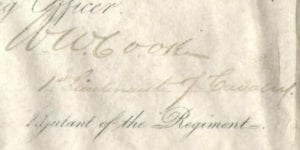 g Officer.
W.W. Cook
1st Lieutenant of Cavalry,
Adjutant of the Regiment.